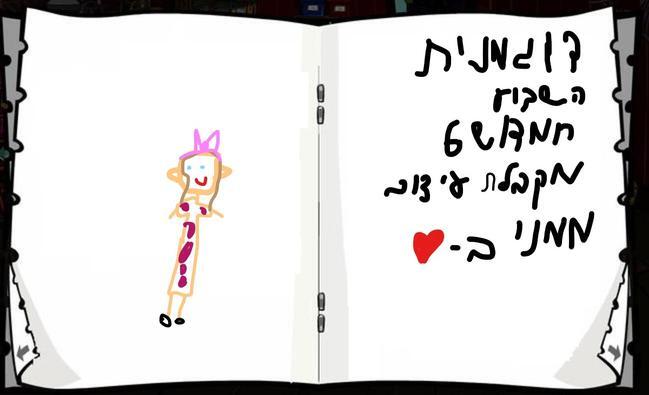 דוגמנית
השבוע
חמדוש6
מקבלת עיצוב
ממני ב-❤